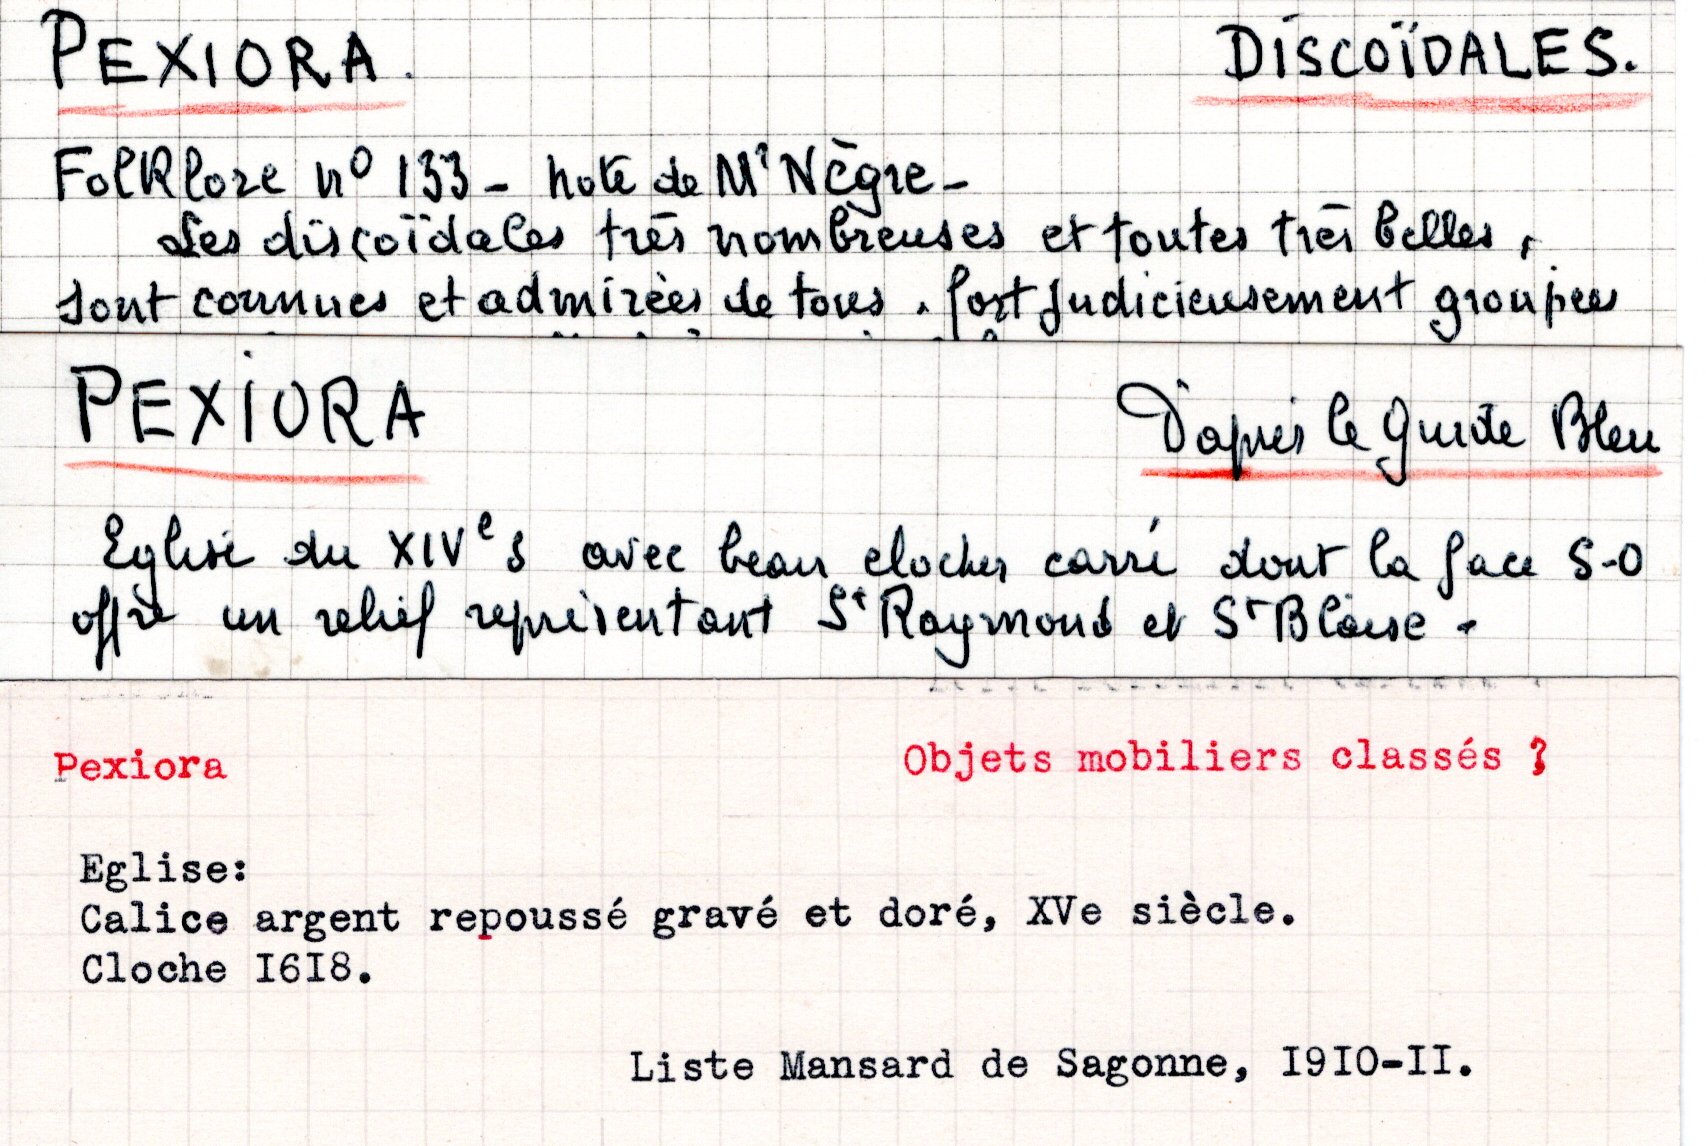 PEXIORA. DISCOÏDALES.
Folklore n° 133 - note de Mr Nègre -
Les discoïdales très nombreuses et toutes très belles,
sont connues et admirées de tous. fort judicieusement groupées
PEXIORA D'après le Guide Bleu
Eglise du XIVe s avec beau clocher carré dont la face S-O
offre un relief représentant St Raymond et St Blaise.
Pexiora Objets mobiliers classés ?
Eglise:
Calice argent repoussé gravé et doré, XVe siècle.
Cloche I6I8.
Liste Mansard de Sagonne, I9I0-II.